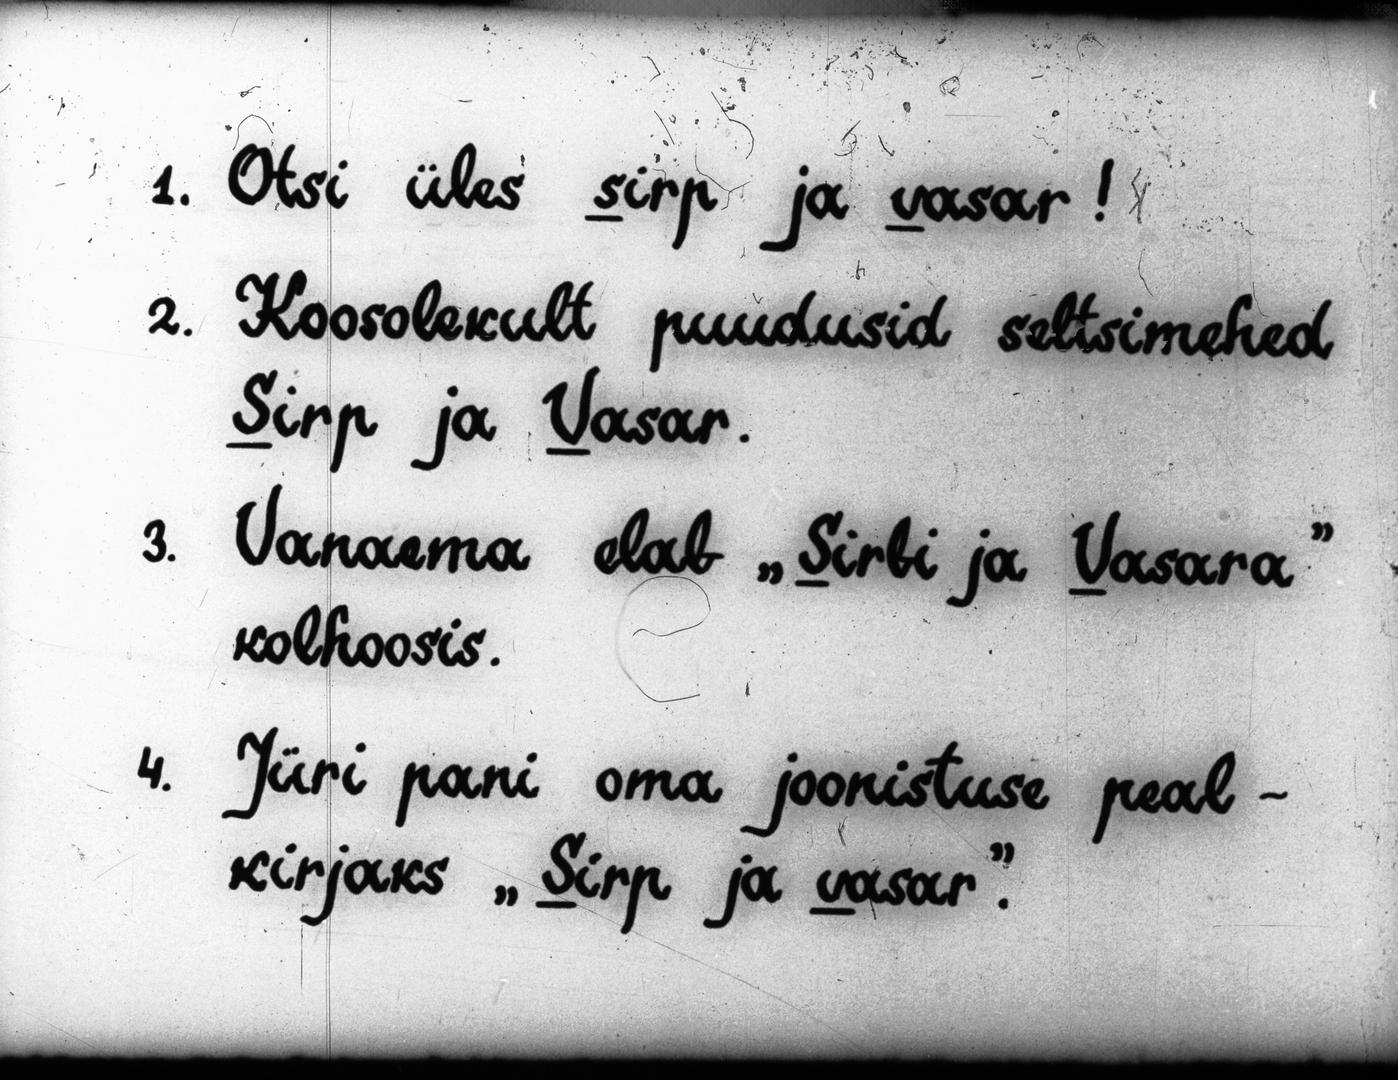 1. Otsi üles sirp ja vasar!
2. Koosolekult puudusid seltsimehed
Sirp ja Vasar.
3. Vanaema elab „Sirbi ja Vasara”
kolhoosis.
4. Jüri pani oma joonistuse peal-
kirjaks „Sirp ja vasar”.